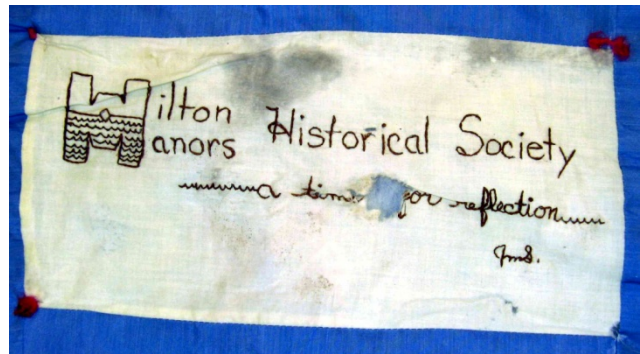 Wilton
Manors Historical Society
a tim for reflection
JmS.